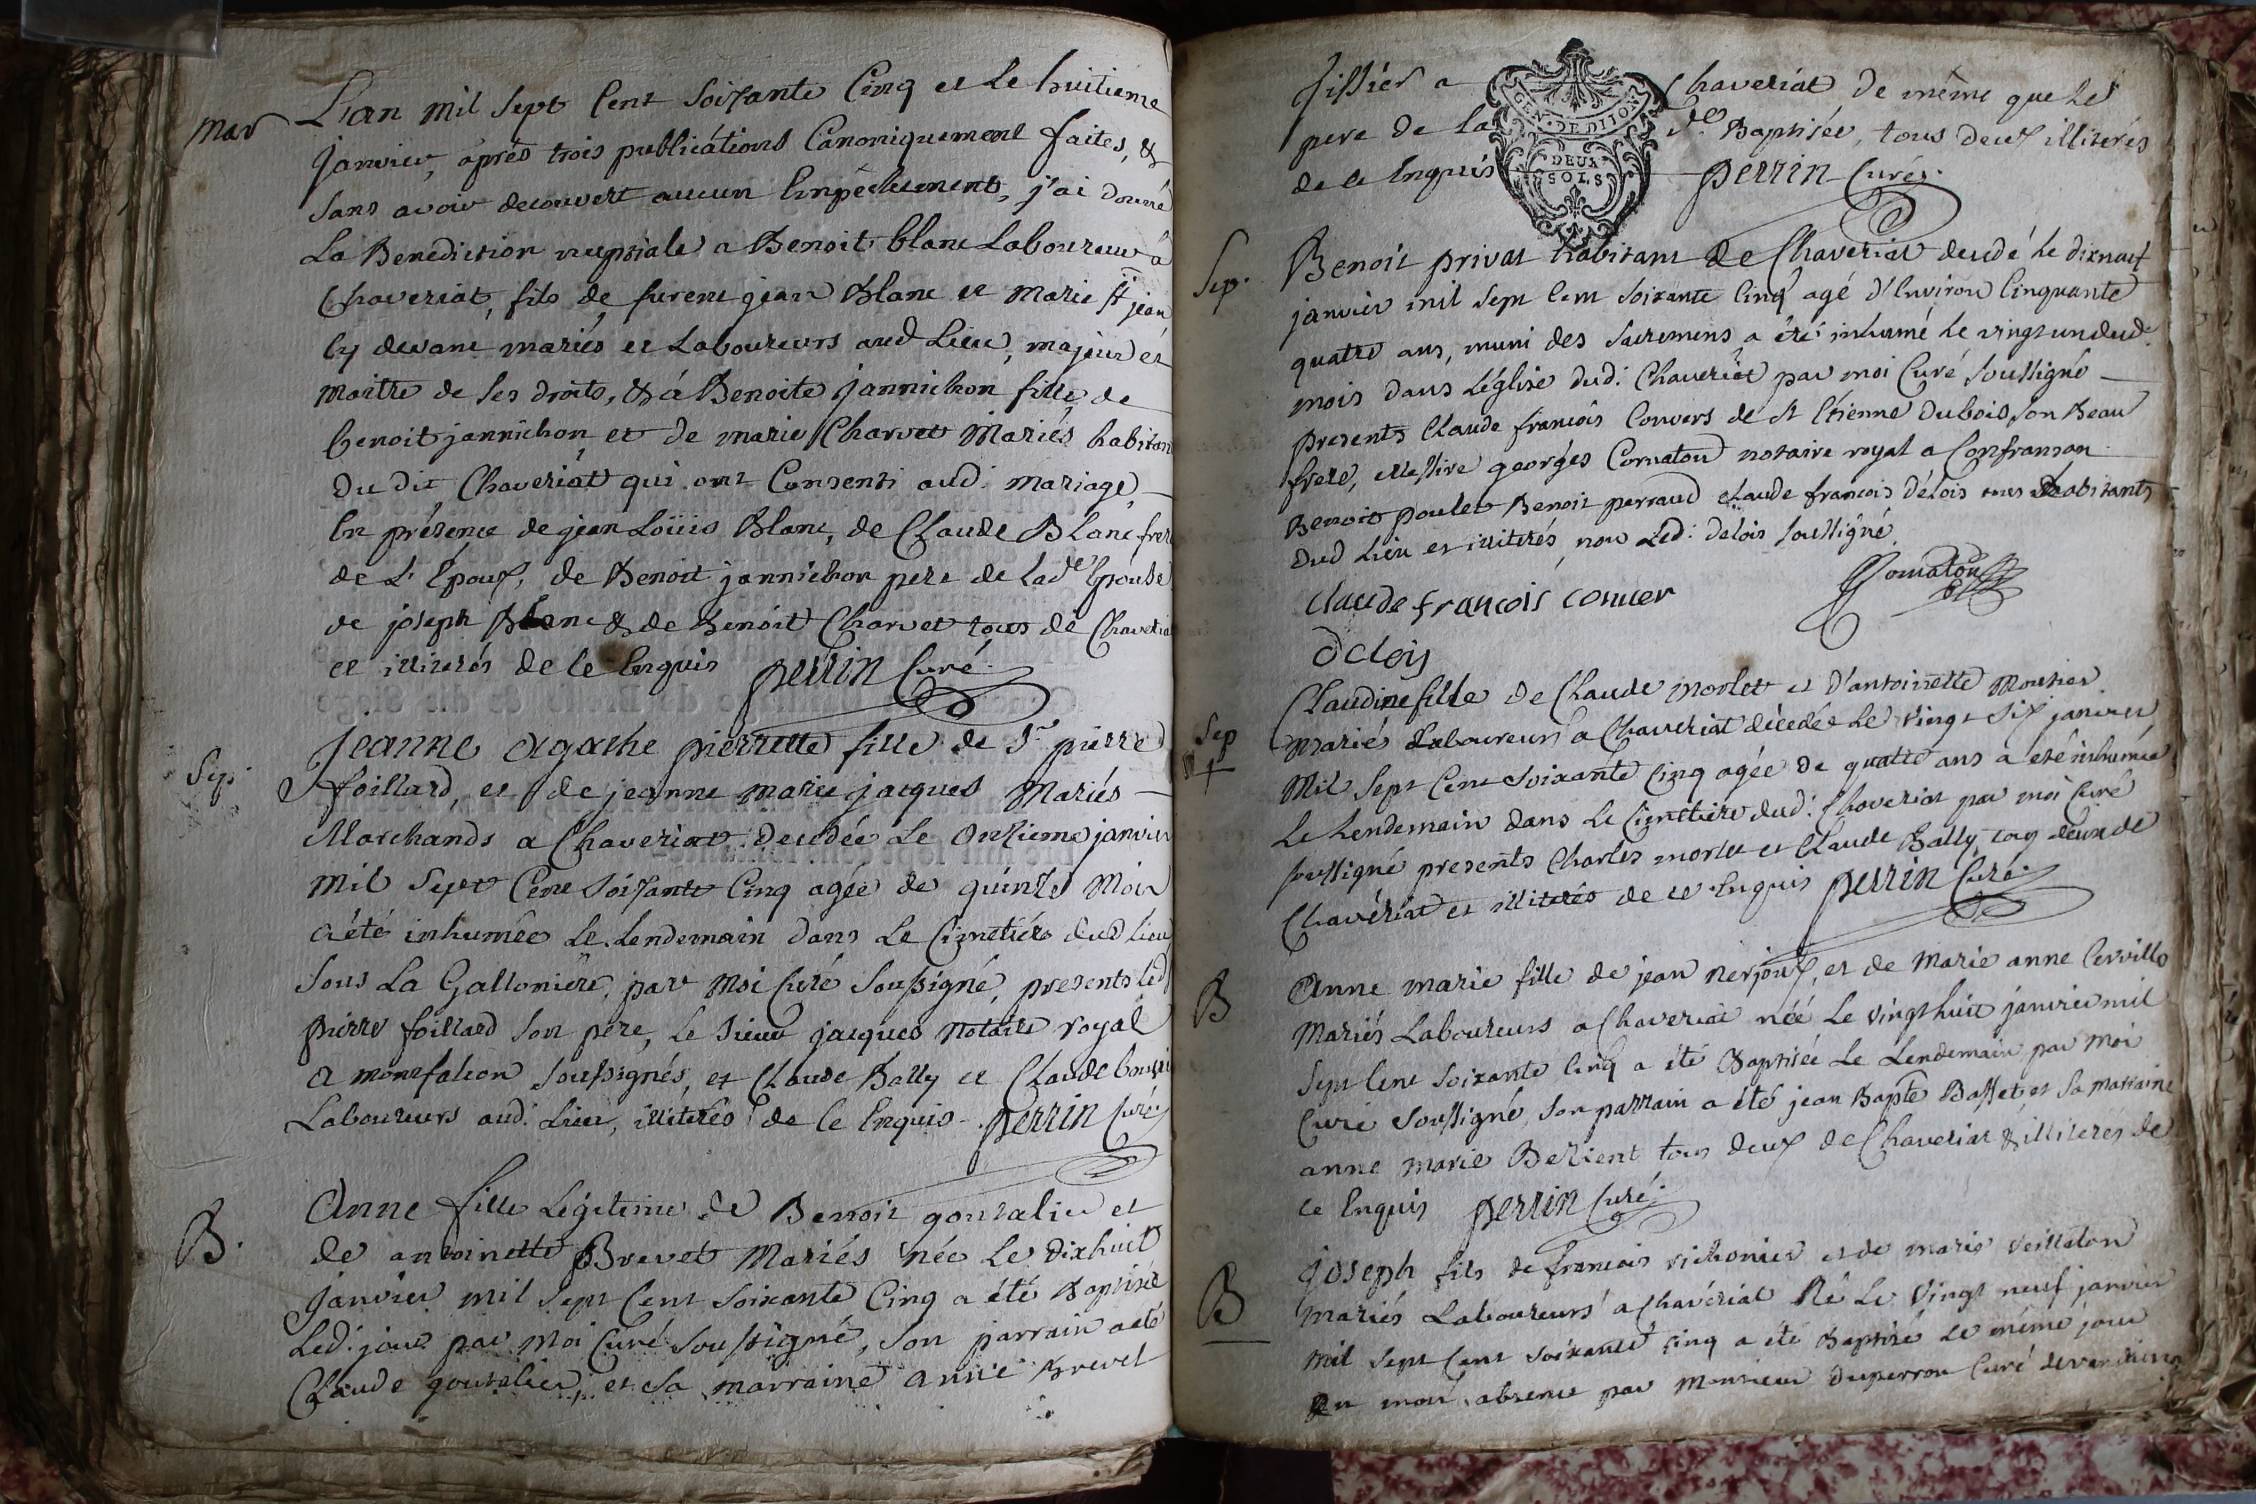 mar
L'an mil sept Cent Soixante Cinq et le huitieme
janvier, áprés trois publicátions Canoniquement faites, &
Sans avoir decouvert aucun Empêchement, j'ai donné
La Benediction nuptiale a Benoit blanc Laboureur a
Chaveriat, fils de furent jean Blanc et Marie St jean
Cy devant mariés et Laboureurs aud Lieu, majeur et
maitre de ses droits, & á Benoite jannichon fille de
benoit jannichon et de marie Charvet Mariés habitan
Du dit Chaveriat qui ont Consenti aud: mariage
En présence de jean Loüis Blanc, de Claude Blanc frere
de L'Epoux, de Benoit jannichon pere de lade Epouse
de joseph Blanc & de Benoit Charvet tous de Chaveria
et illiterés de ce Enquis perrin Curé.
Sep.
Jeanne Agathe pierrette fille de Sr pierre
foillard, et de jeanne marie jacques Mariés
Marchands a Chaveriat decedée Le Onzieme janvier
mil Sept Cent Soixante Cinq agée de quinze Mois
a été inhumée Le Lendemain dans Le Cimetiére dud Lieu
Sous La Gallonière, par Moi Curé Soussigné, presents Led
pierre foillard son pere, Le Sieur jacques Notaire royal
a montfalcon Soussignés, et Claude Bally et Claude
Laboureurs aud. Lieu, illiterés de Ce Enquis. perrin Curé
B.
Anne fille Légitime de Benoit goutalier et
de antoinette Brevet Mariés née Le dixhuit
Janvier mil Sept Cent Soixante Cinq a été Baptisée
Led: jour par Moi Curé Soussigné, Son parrain a eté
Claude goutalier, et Sa marraine anne Brevet
Tissier a Chaveriat de même que Le
GEN. DE DIJON
DEUX
SOLS
pere de la de Baptisée, tous deux illiterés
de ce Enquis perrin Curé.
Sep.
Benoit privat habitant de Chaveriat decedé Le dixneuf
janvier mil Sept Cent Soixante Cinq agé d'Environ Cinquante
quatre ans, muni des Sacremens a été inhumé Le vingt un dud.
mois dans L'église dud: Chaveriat par moi Curé Soussigné
presents Claude françois Convers de St Etienne Dubois son Beau
frere, Messire georges Cornaton notaire royal a Confranson
Benoit poulet Benoit perraud Claude francois délois tous habitants
dud Lieu et illiterés, non Led: delois Soussigné.
Claude françois conuer Cornaton
delois
Sep
Claudine fille de Claude morlet et d'antoinette Moutier
Mariés Laboureurs a Chaveriat décedée Le vingt Six janvier
Mil Sept Cent Soixante Cinq agée de quatre ans a eté inhumée
Le Lendemain dans Le Cimetiere dud: Chaveriat par moi Curé
soussigné presents Charles morlet et Claude Bally, tous deux de
Chavériat et illiterés de ce Enquis perrin Curé.
B
Anne marie fille de jean nerjoux et de Marie anne
Mariés Laboureurs a Chaveriat née Le vingt huit janvier mil
Sept Cent Soixante Cinq a été Baptisée Le Lendemain par moi
Curé Soussigné, Son parrain a été jean Bapte Basset et Sa marraine
anne marie tous deux de Chaveriat & illiterés de
ce Enquis perrin Curé.
B
Joseph fils de francois vichonier et de marie
mariés Laboureurs a Chavériat Né Le Vingt neuf janvier
mil Sept Cent Soixante Cinq a été Baptisé Le même jour
En mon absence par Monsieur Duperron Curé de